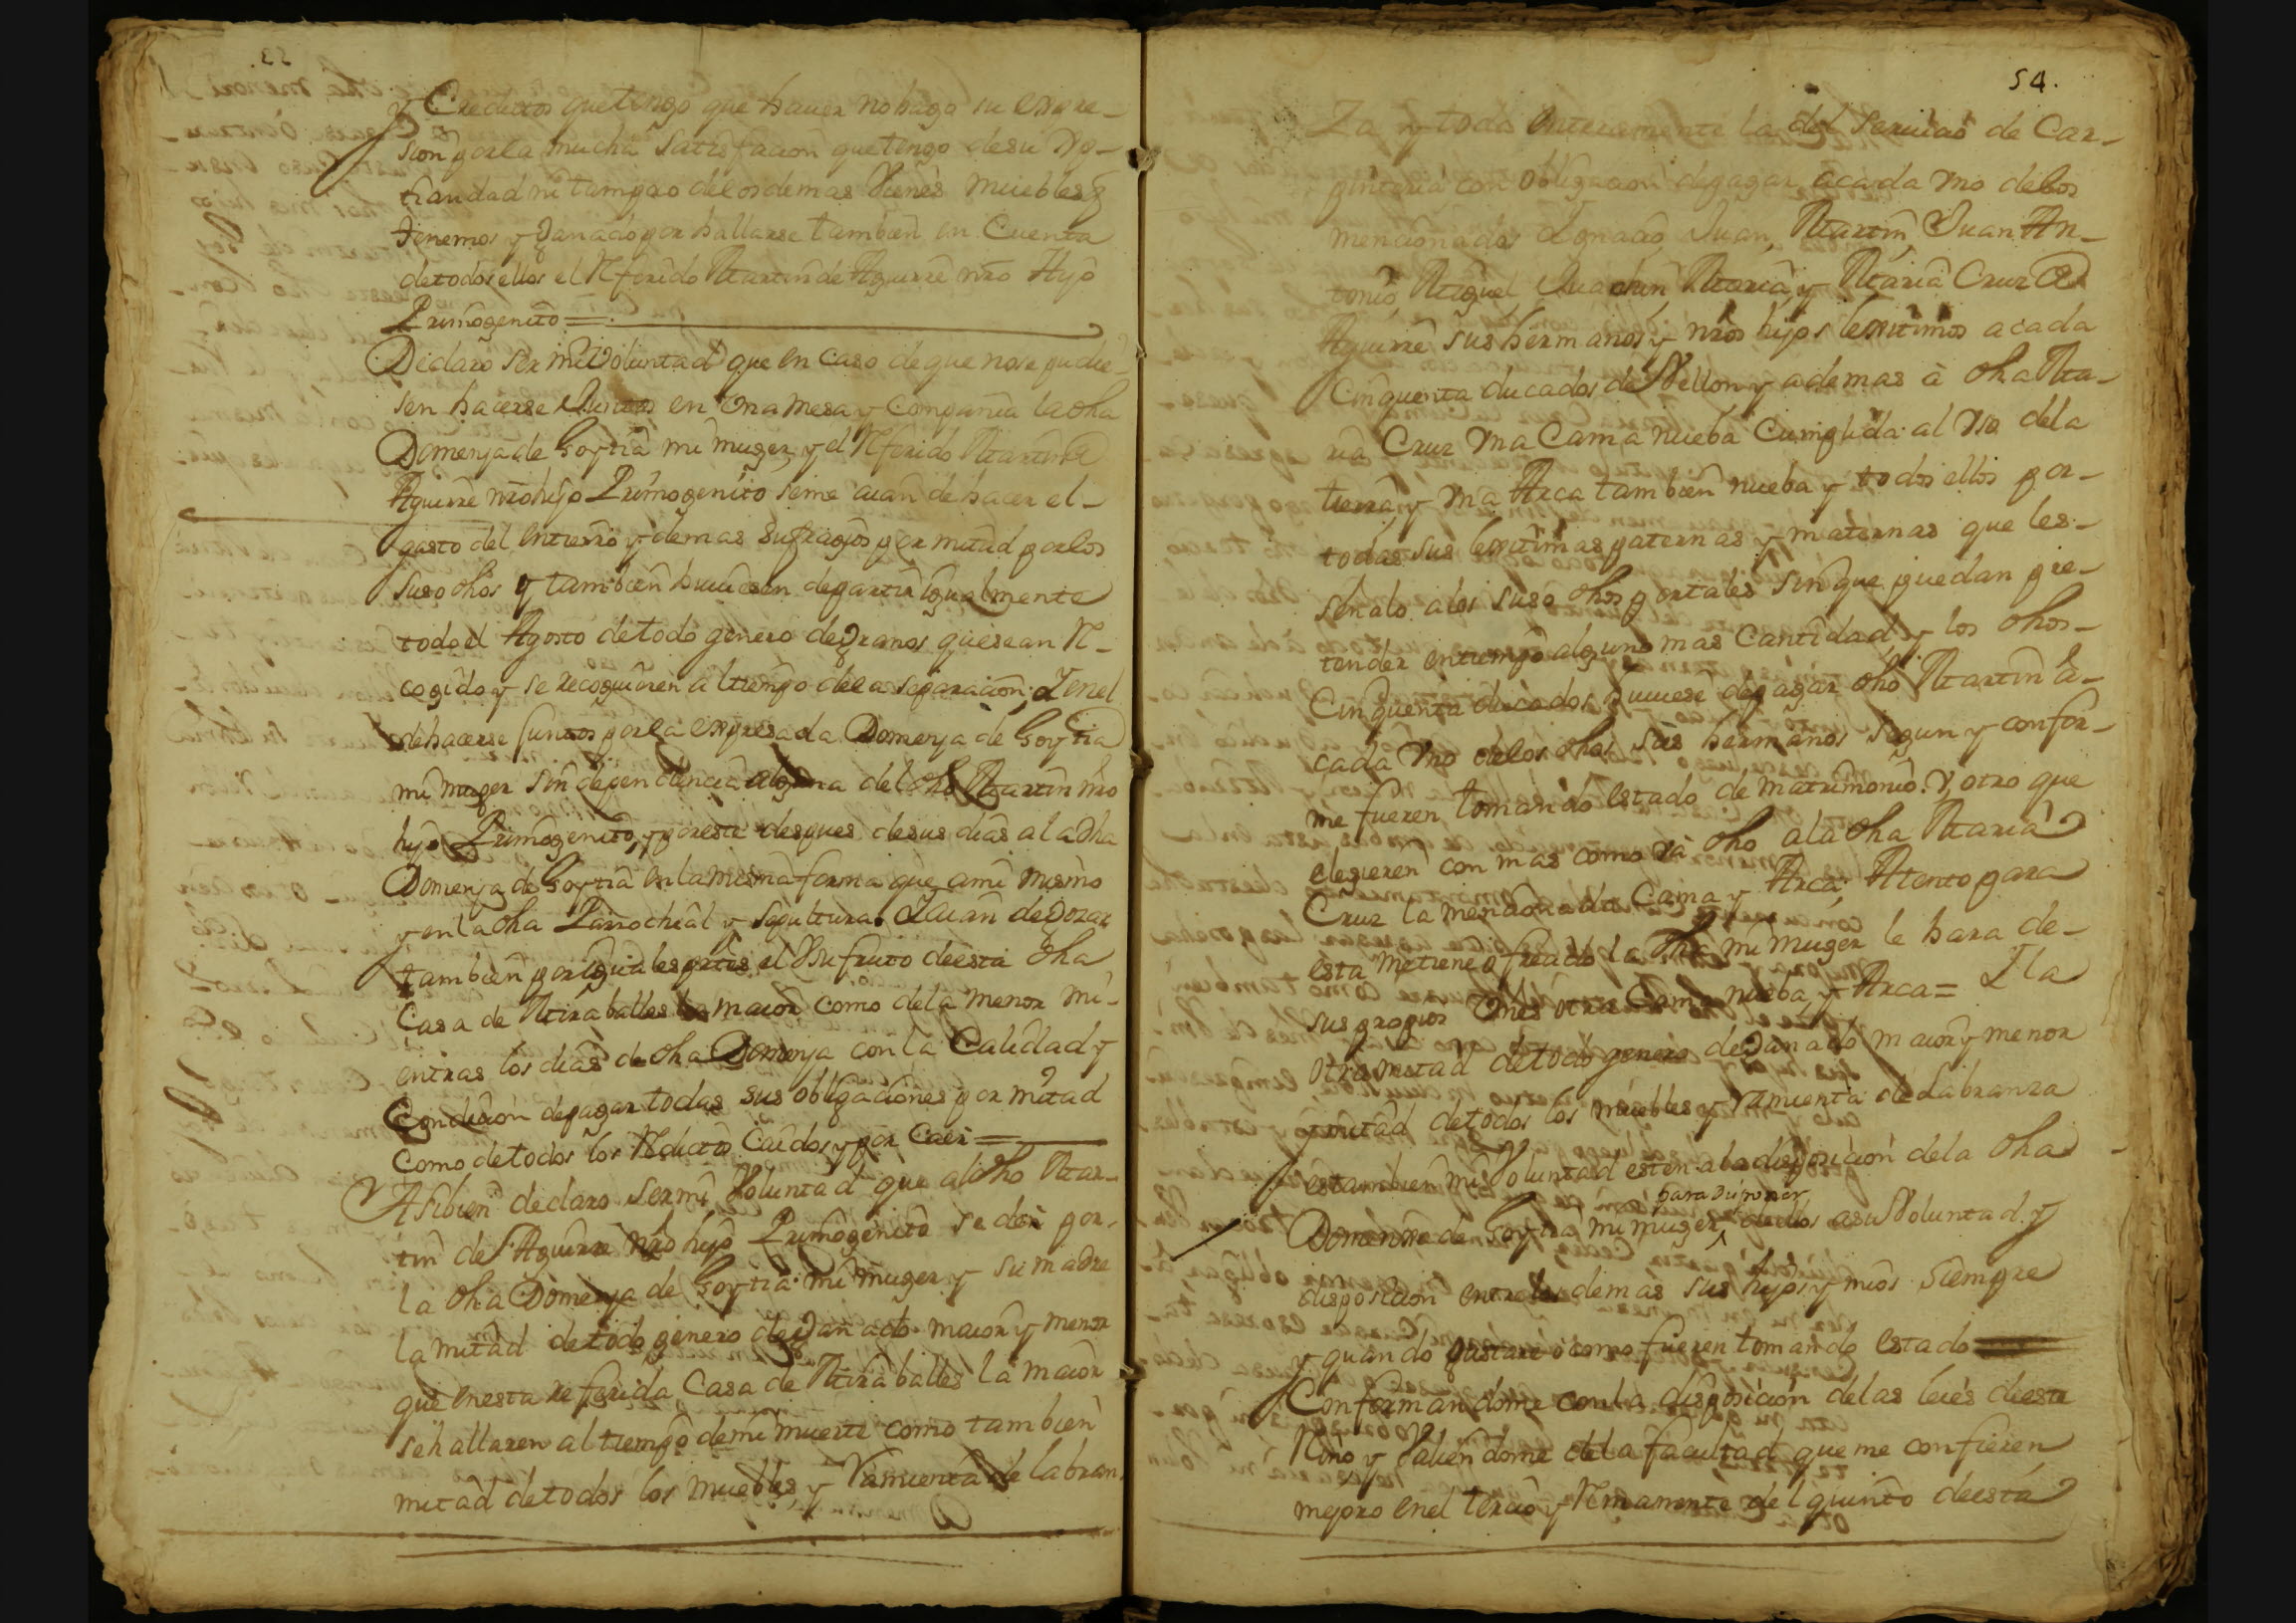 y Creditos que tengo que hauer no hago su expre-
sion por la mucha satisfacion que tengo de su xp-
tiandad ni tampoco de los demas Vienes muebles q
tenemos y Ganado por hallarse tambien en Cuenta
de todos ellos el Referido Martin de Aguirre nro Hijo
Primogenito =
Declaro ser mi Voluntad que en caso de que no se pudie-
sen hacerse Juntos en Vna mesa y Compañia la dha
Domenja de Goytia mi muger y el Referido Martin de
Aguirre nro hijo Primogenito se me aian de hacer el-
gasto del entierro y demas sufragios por mitad por los
suso dhos y tambien huuiesen de partir igualmente
todo el Agosto de todo genero de granos que sean Re-
cogido y se recoguieren al tiempo de la separacion; Y en el
de hacerse Juntos por la expresada Domenja de Goytia
mi muger sin dependencia alguna del dho Martin nro
hijo Primogenito, y por este despues de sus dias a la dha
Domenja de Goytia en la misma forma que a mi mismo
y en la dha Parrochial y sepultura. Y aian de Gozar
tambien por iguales partes el Vsufruto de esta dha
Casa de Miraballes la maior como de la menor mi-
entras los dias de dha Domenja con la Calidad y
Condicion de pagar todas sus obligaciones por mitad
Como de todos los Reditos Caidos y por Caer =
Asibien declaro ser mi Voluntad que al dho Mar-
tin de Aguirre nro hijo Primogenito se dee por
la dha Domenja de Goytia mi muger y su madre
la mitad de todo genero de Ganado maior y menor
que en esta referida Casa de Miraballes la maior
se hallaren al tiempo de mi muerte como tambien
mitad de todos los muebles y Ramienta de labran
54.
Za y todo enteramente la del seruicio de Car-
pinteria con obligacion de pagar a cada vno de los
mencionados Ignacio, Juan, Martin, Juan An-
tonio, Miguel, Juachin, Maria, y Maria Cruz de
Aguirre sus hermanos y nros hijos lexitimos a cada
Cinquenta ducados de Vellon y ademas à dha Ma-
ria Cruz vna Cama nueba Cumplida al vso de la
tierra y vna Arca tambien nueba y todos ellos por-
todas sus lexitimas paternas y maternas que les-
señalo a los suso dhos por tales sin que puedan pre-
tender en tiempo alguno mas Cantidad, y los dhos-
Cinquenta ducados huuiese de pagar dho Martin à-
cada vno de los dhos sus hermanos segun y confor-
me fueren tomando estado de matrimonio. Y, otro que
elegieren con mas como va dho a la dha Maria
Cruz la mencionada Cama y Arca; Atento para
esta me tiene ofreado la dha mi muger le hara de-
sus propios Vnes otra Cama nueba, y Arca = Y la
otra mitad de todo genero de Ganado maior y menor
mitad de todos los muebles y Ramienta de Labranza
es tambien mi Voluntad esten a la disposicion de la dha
para disponer
Domenja de Goytia mi muger ^ dellos a su Voluntad. y
disposicion entre los demas sus hijos y mios siempre
y quando gustare o como fueren tomando estado =
Conformandome con la disposicion de las leies de este
Reino y Valiendome de la facultad que me confieren
mejoro en el tercio y Remanente del quinto de esta